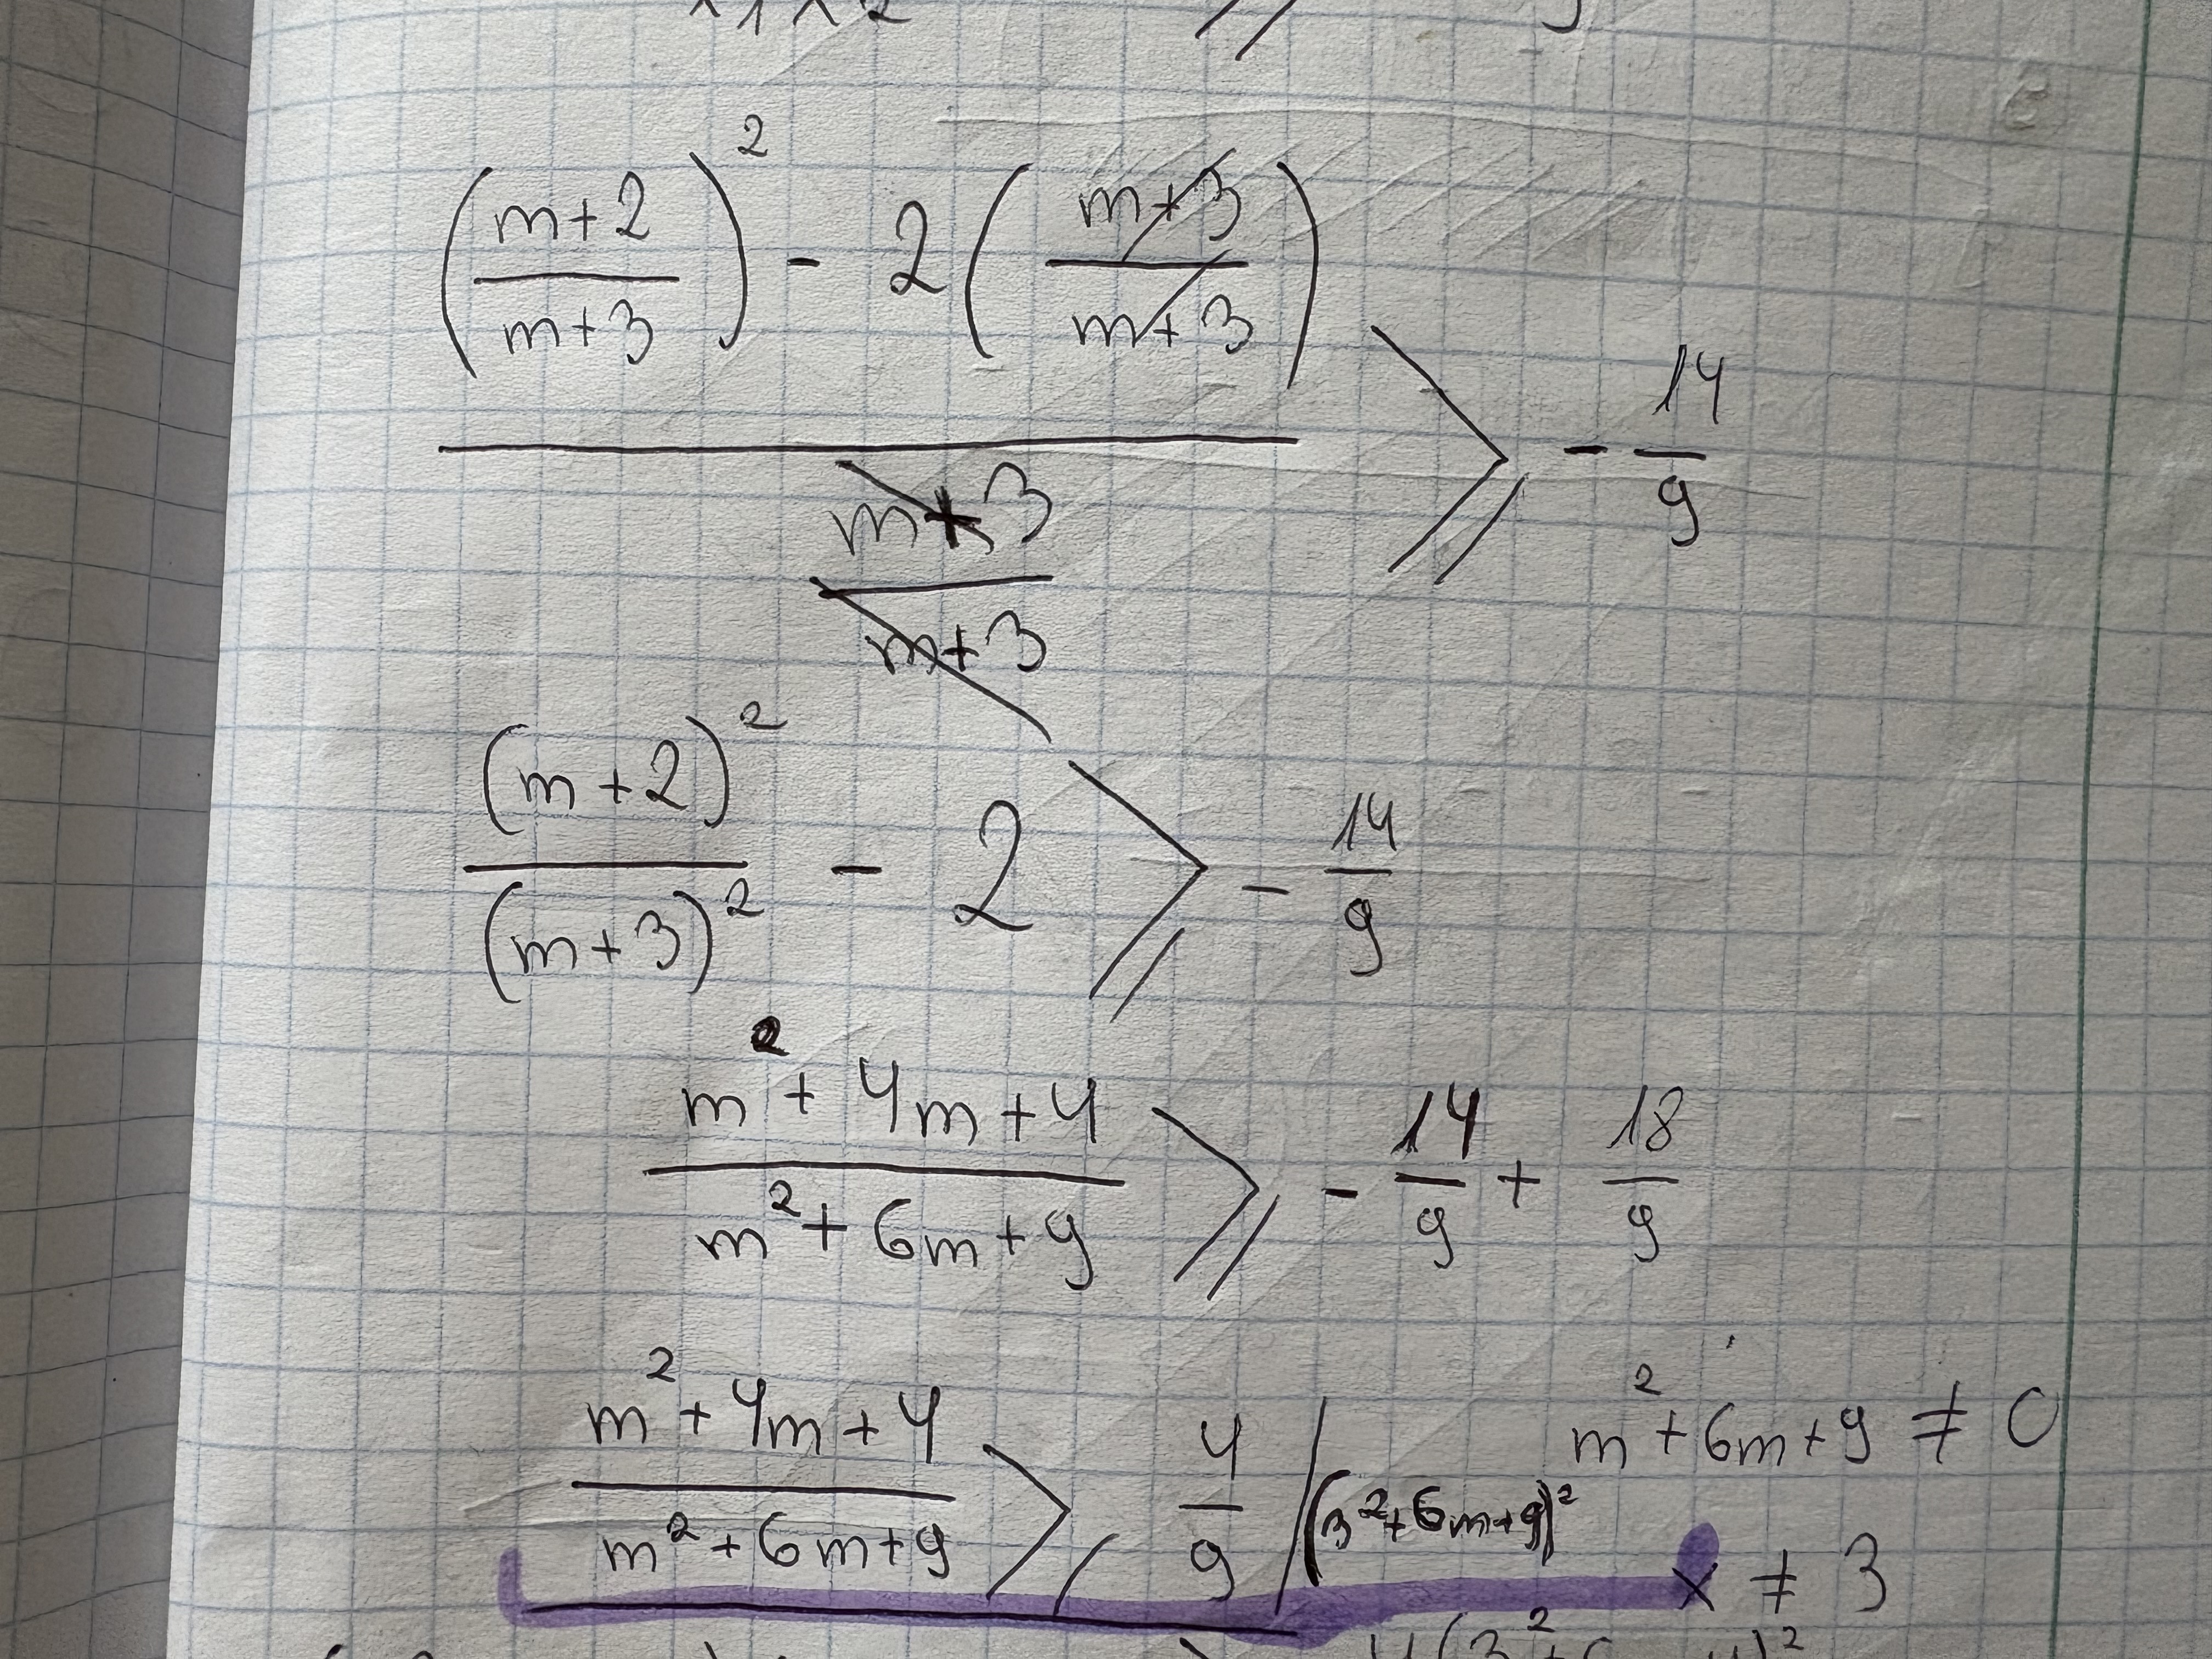 x₁ x₂
((m+2)/(m+3))² - 2((m+3)/(m+3))
/ ((m+3)/(m+3)) ⩾ - 14/9
(m+2)²/(m+3)² - 2 ⩾ - 14/9
(m²+4m+4)/(m²+6m+9) ⩾ - 14/9 + 18/9
(m²+4m+4)/(m²+6m+9) ⩾ 4/9 / (3²+6m+9)² m²+6m+9 ≠ 0
x ≠ 3